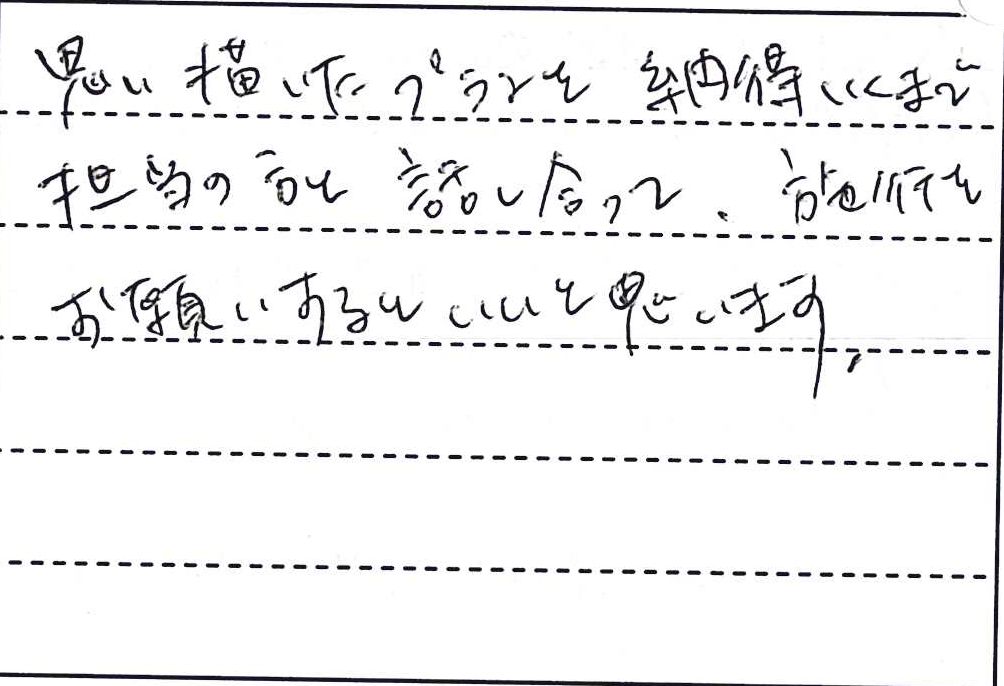 思い描いたプランを納得いくまで
担当の方と話し合って、施行を
お願いするといいと思います。